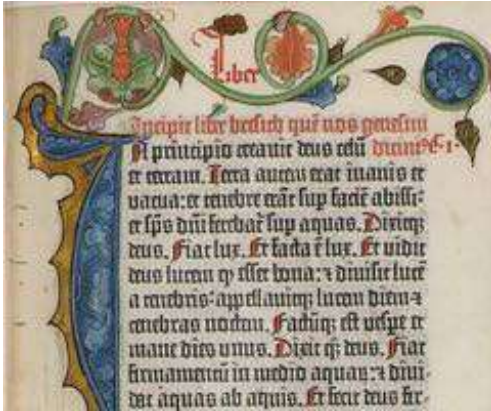 Liber
Incipit liber bresich quē nos genesim
In principio creauit deus celū dicim⁹ C·1·
et terram. Terra autem erat inanis et
vacua: et tenebre erāt sup faciē abissi:
et sp̄s dn̄i ferebat͛ sup aquas. Dixitq;
deus. Fiat lux. Et facta ē lux. Et vidit
deus lucem q̄ esset bona: ⁊ diuisit lucē
a tenebris· appellauitq; lucem diem ⁊
tenebras noctem. Factūq; est vespe et
mane dies unus. Dixit q̄; deus. Fiat
firmamentū in medio aquaꝝ: ⁊ diui-
dat aquas ab aquis. Et fecit deus fir-